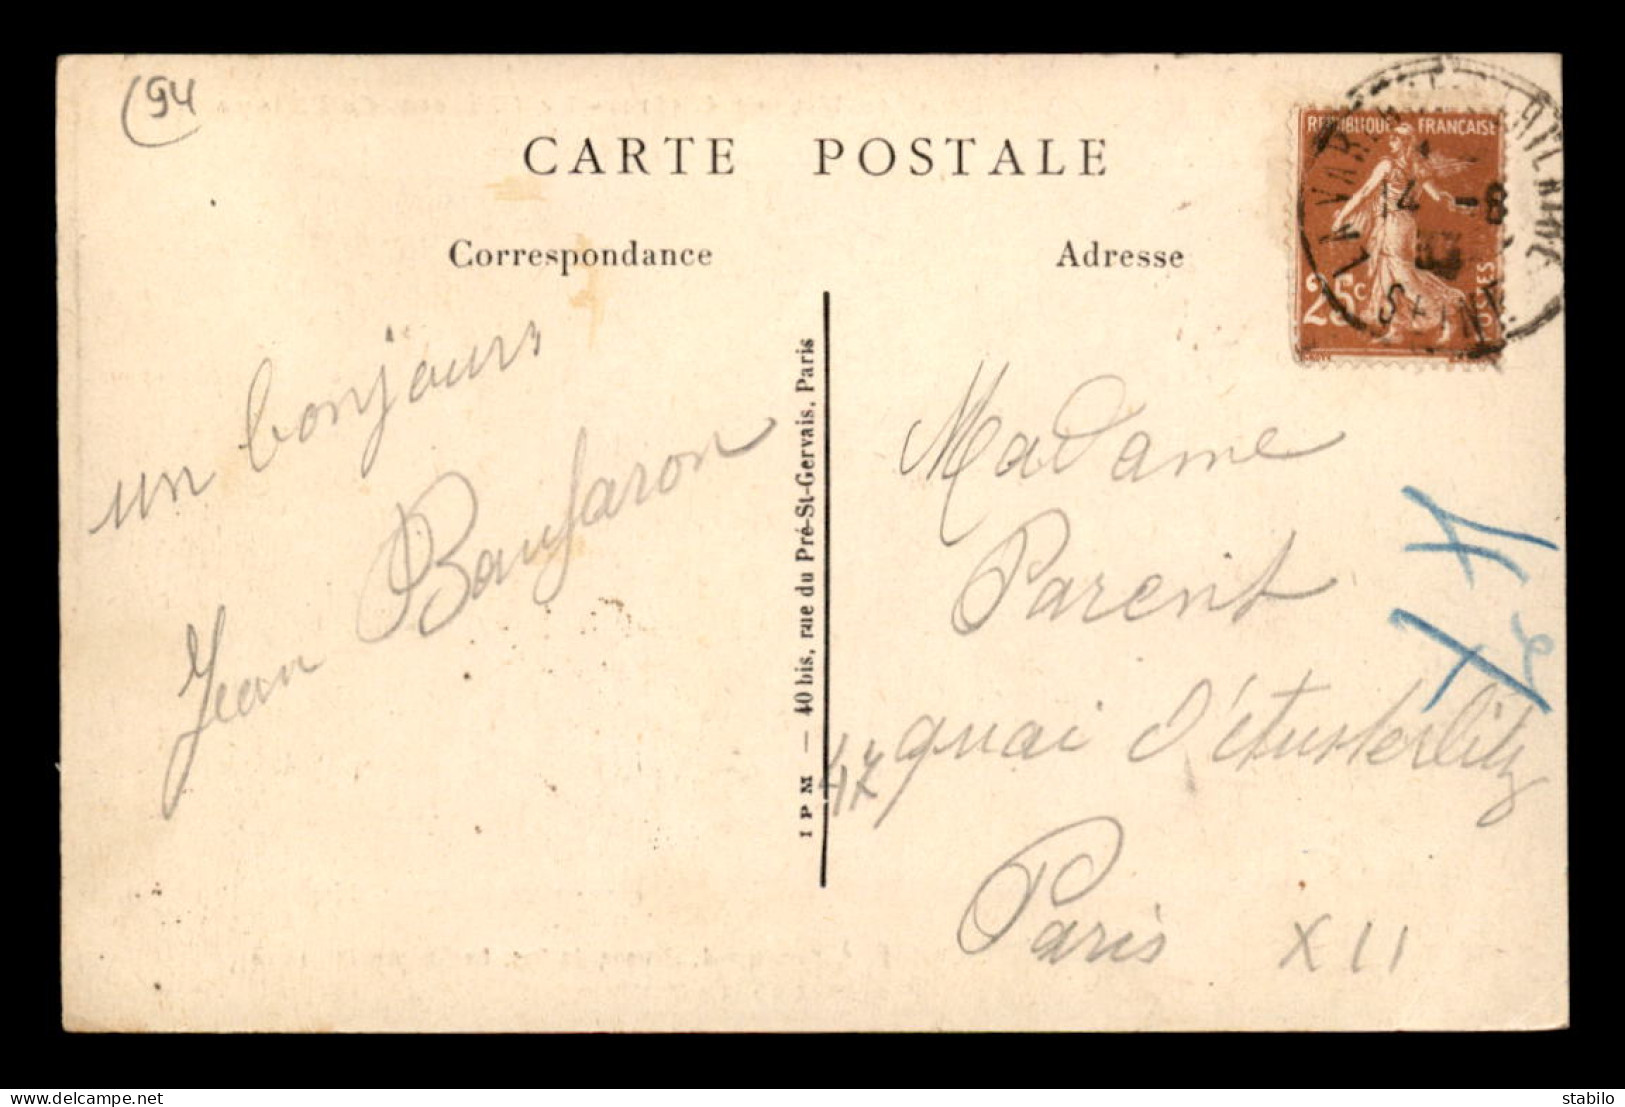 94
CARTE POSTALE
Correspondance
Adresse
REPUBLIQUE FRANÇAISE
25c
POSTES
LA VARENNE ST HILAIRE
14 -8
33
SEINE
un bonjours
Jean Baufaron
I P M — 40 bis, rue du Pré-St-Gervais, Paris
Madame
Parent
47 quai d'étusterlitz
Paris
XII
delcampe.net
stabilo